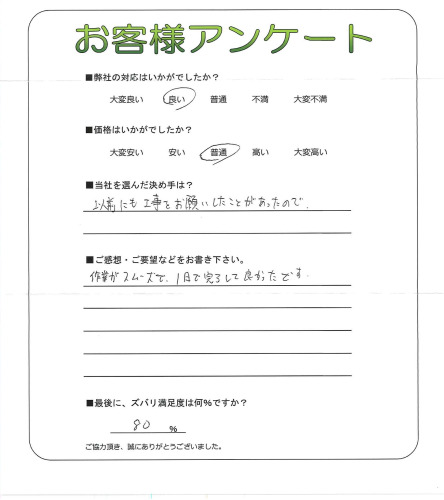 お客様アンケート
■弊社の対応はいかがでしたか?
大変良い 良い 普通 不満 大変不満
■価格はいかがでしたか?
大変安い 安い 普通 高い 大変高い
■当社を選んだ決め手は?
以前にも工事をお願いしたことがあったので.
■ご感想・ご要望などをお書き下さい。
作業がスムーズで、1日で完了して良かったです.
■最後に、ズバリ満足度は何%ですか?
80 %
ご協力頂き、誠にありがとうございました。